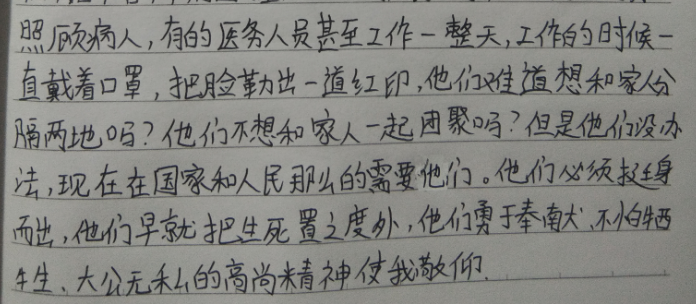 照顾病人,有的医务人员甚至工作一整天,工作的时候一
直戴着口罩,把脸勒出一道红印,他们难道想和家人分
隔两地吗?他们不想和家人一起团聚吗?但是他们没办
法,现在在国家和人民那么的需要他们。他们必须挺身
而出,他们早就把生死置之度外,他们勇于奉献、不怕牺
牲、大公无私的高尚精神使我敬仰.